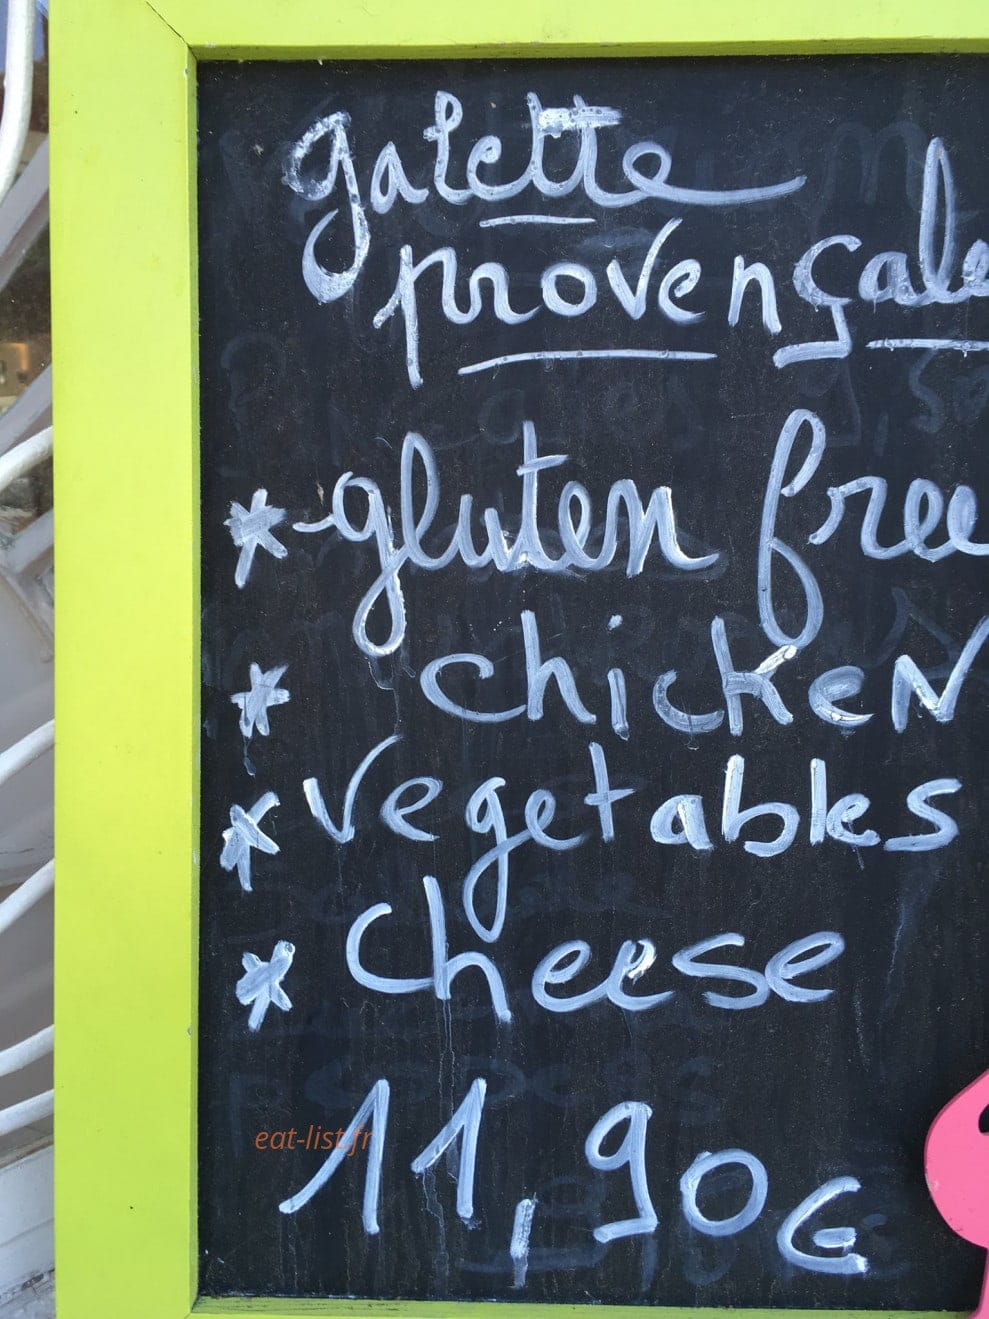 galette
provençale
* gluten free
* chicken
* vegetables
* cheese
11,90€
eat-list.fr